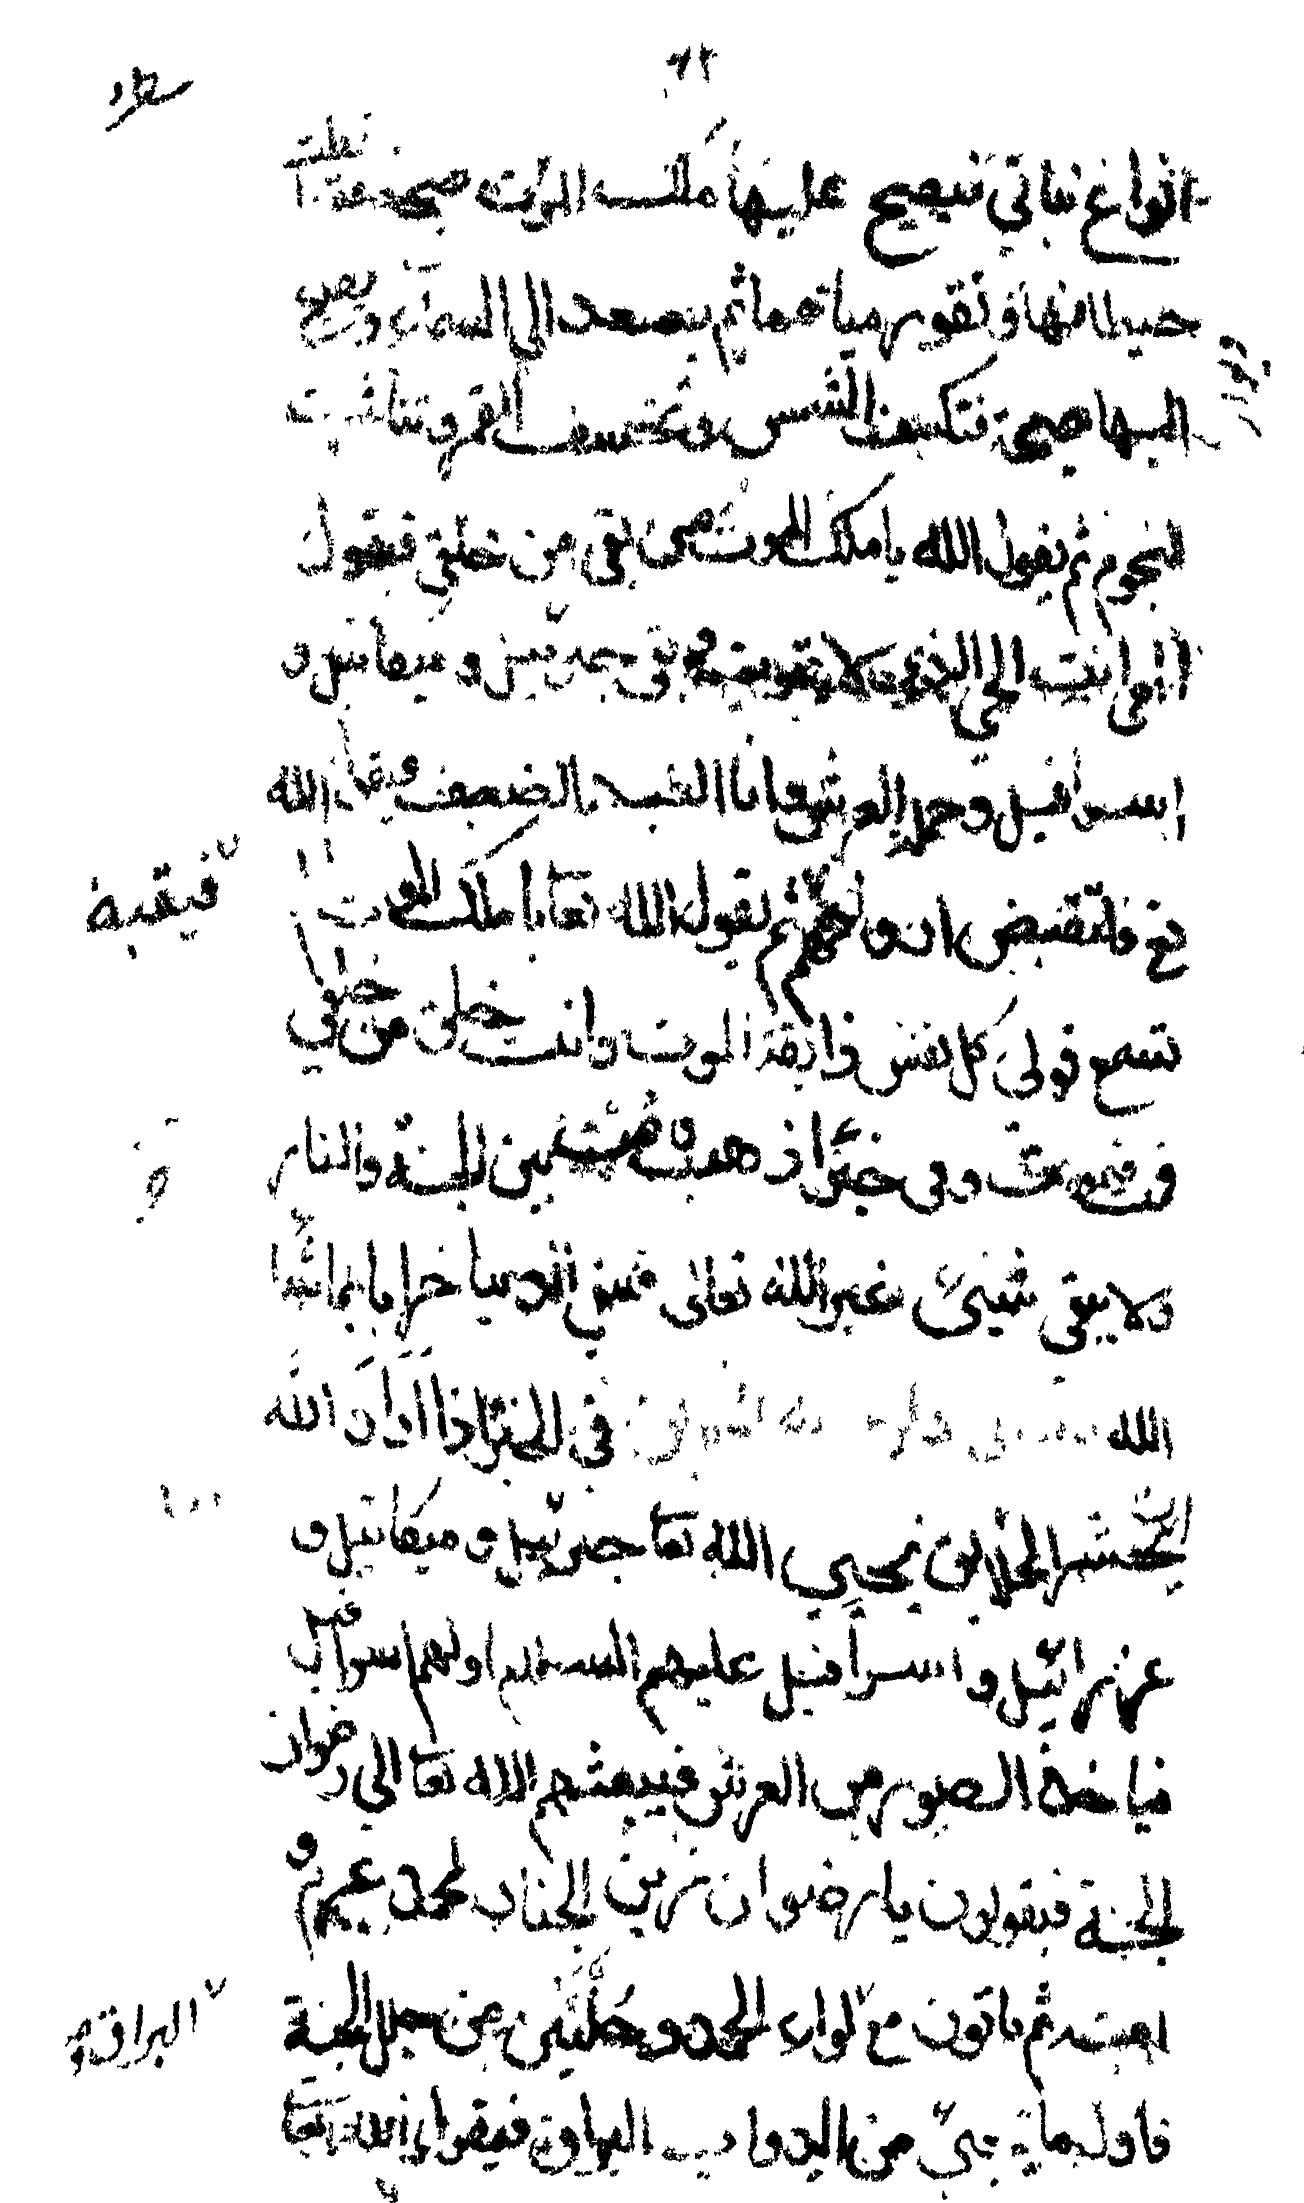 ٦٢
انواع نباتي فيصيح عليها ملك الموت صيحة
حيطانها وتغور مياهها ثم يصعد الى السماء ويصيح
اليها صيحة فتكسف الشمس وتخسف القمر وتناثرت
لنجوم ثم يقول الله يا ملك الموت من بقى من خلقي فيقول
الهى انت الحي الذي لا يموت وبقى جبرئيل وميكائيل و
اسرافيل وحملة العرش وانا العبد الضعيف فيقال الله
تع فاتقبض ارواحهم ثم يقول الله تعا يا ملك الموت الم
فيقبضه
تسمع قولى كل نفس ذائقة الموت وانت خلق من خلقي
فمت فيموت وفى خبر اذهب ومت بين الجنة والنار
ولا يبقى شيئ غير الله تعالى فتبقى الدنيا خرابا بما شاء
الله في الخبر اذا اراد الله
ان يحشر الخلايق يحيي الله تعا جبرئيل وميكائيل و
عزرائيل واسرافيل عليهم السلام اولهم اسرافيل
فياخذ الصور من العرش فيبعثهم الله تعا الى رضوان
الجنة فيقولون يا رضوان زين الجنان لمحمد عم و
امته ثم ياتون مع لواء الحمد وحلتين من حلل الجنة
البراق و
فاول ما يحيى من الدواب البراق فيقول الله تعا